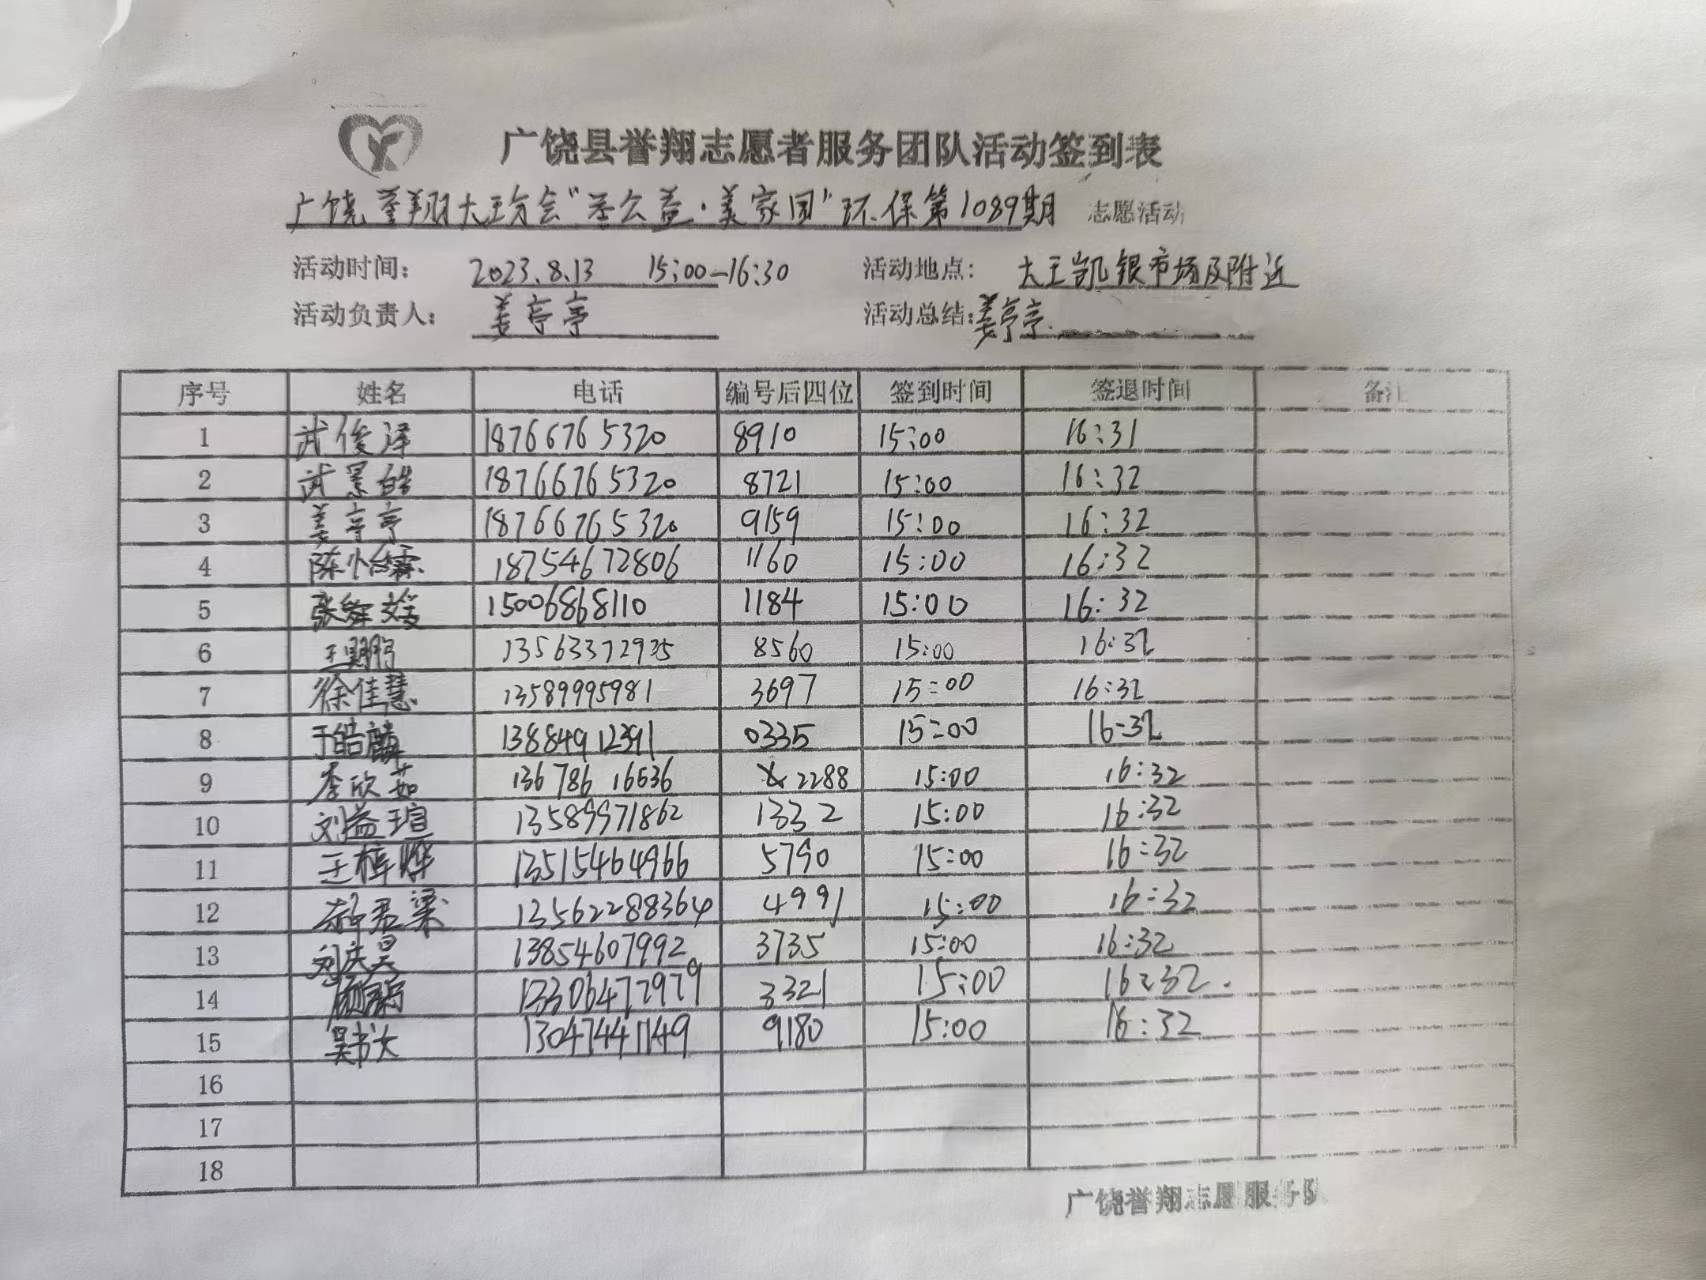 广饶县誉翔志愿者服务团队活动签到表
广饶誉翔大王分会“季公益·美家园”环保第1089期 志愿活动
活动时间: 2023.8.13 15:00-16:30 活动地点: 大王凯银市场及附近
活动负责人: 姜亭亭 活动总结: 姜亭亭
序号 姓名 电话 编号后四位 签到时间 签退时间 备注
1 武俊泽 18766765320 8910 15:00 16:31
2 武景皓 18766765320 8721 15:00 16:32
3 姜亭亭 18766765320 9159 15:00 16:32
4 陈怡霖 18754672806 1160 15:00 16:32
5 张舜雯 15006868110 1184 15:00 16:32
6 13563372935 8560 15:00 16:32
7 徐佳慧 13589995981 3697 15:00 16:32
8 于皓麟 13884912391 0335 15:00 16:32
9 李欣茹 13678616536 2288 15:00 16:32
10 刘益瑄 13589971862 1332 15:00 16:32
11 王梓烨 13515464966 5790 15:00 16:32
12 郝君梁 13562288364 4991 15:00 16:32
13 刘庆昊 13854607992 3735 15:00 16:32
14 13306472979 3321 15:00 16:32.
15 吴书 13047441149 9180 15:00 16:32
16
17
18
广饶誉翔志愿服务队